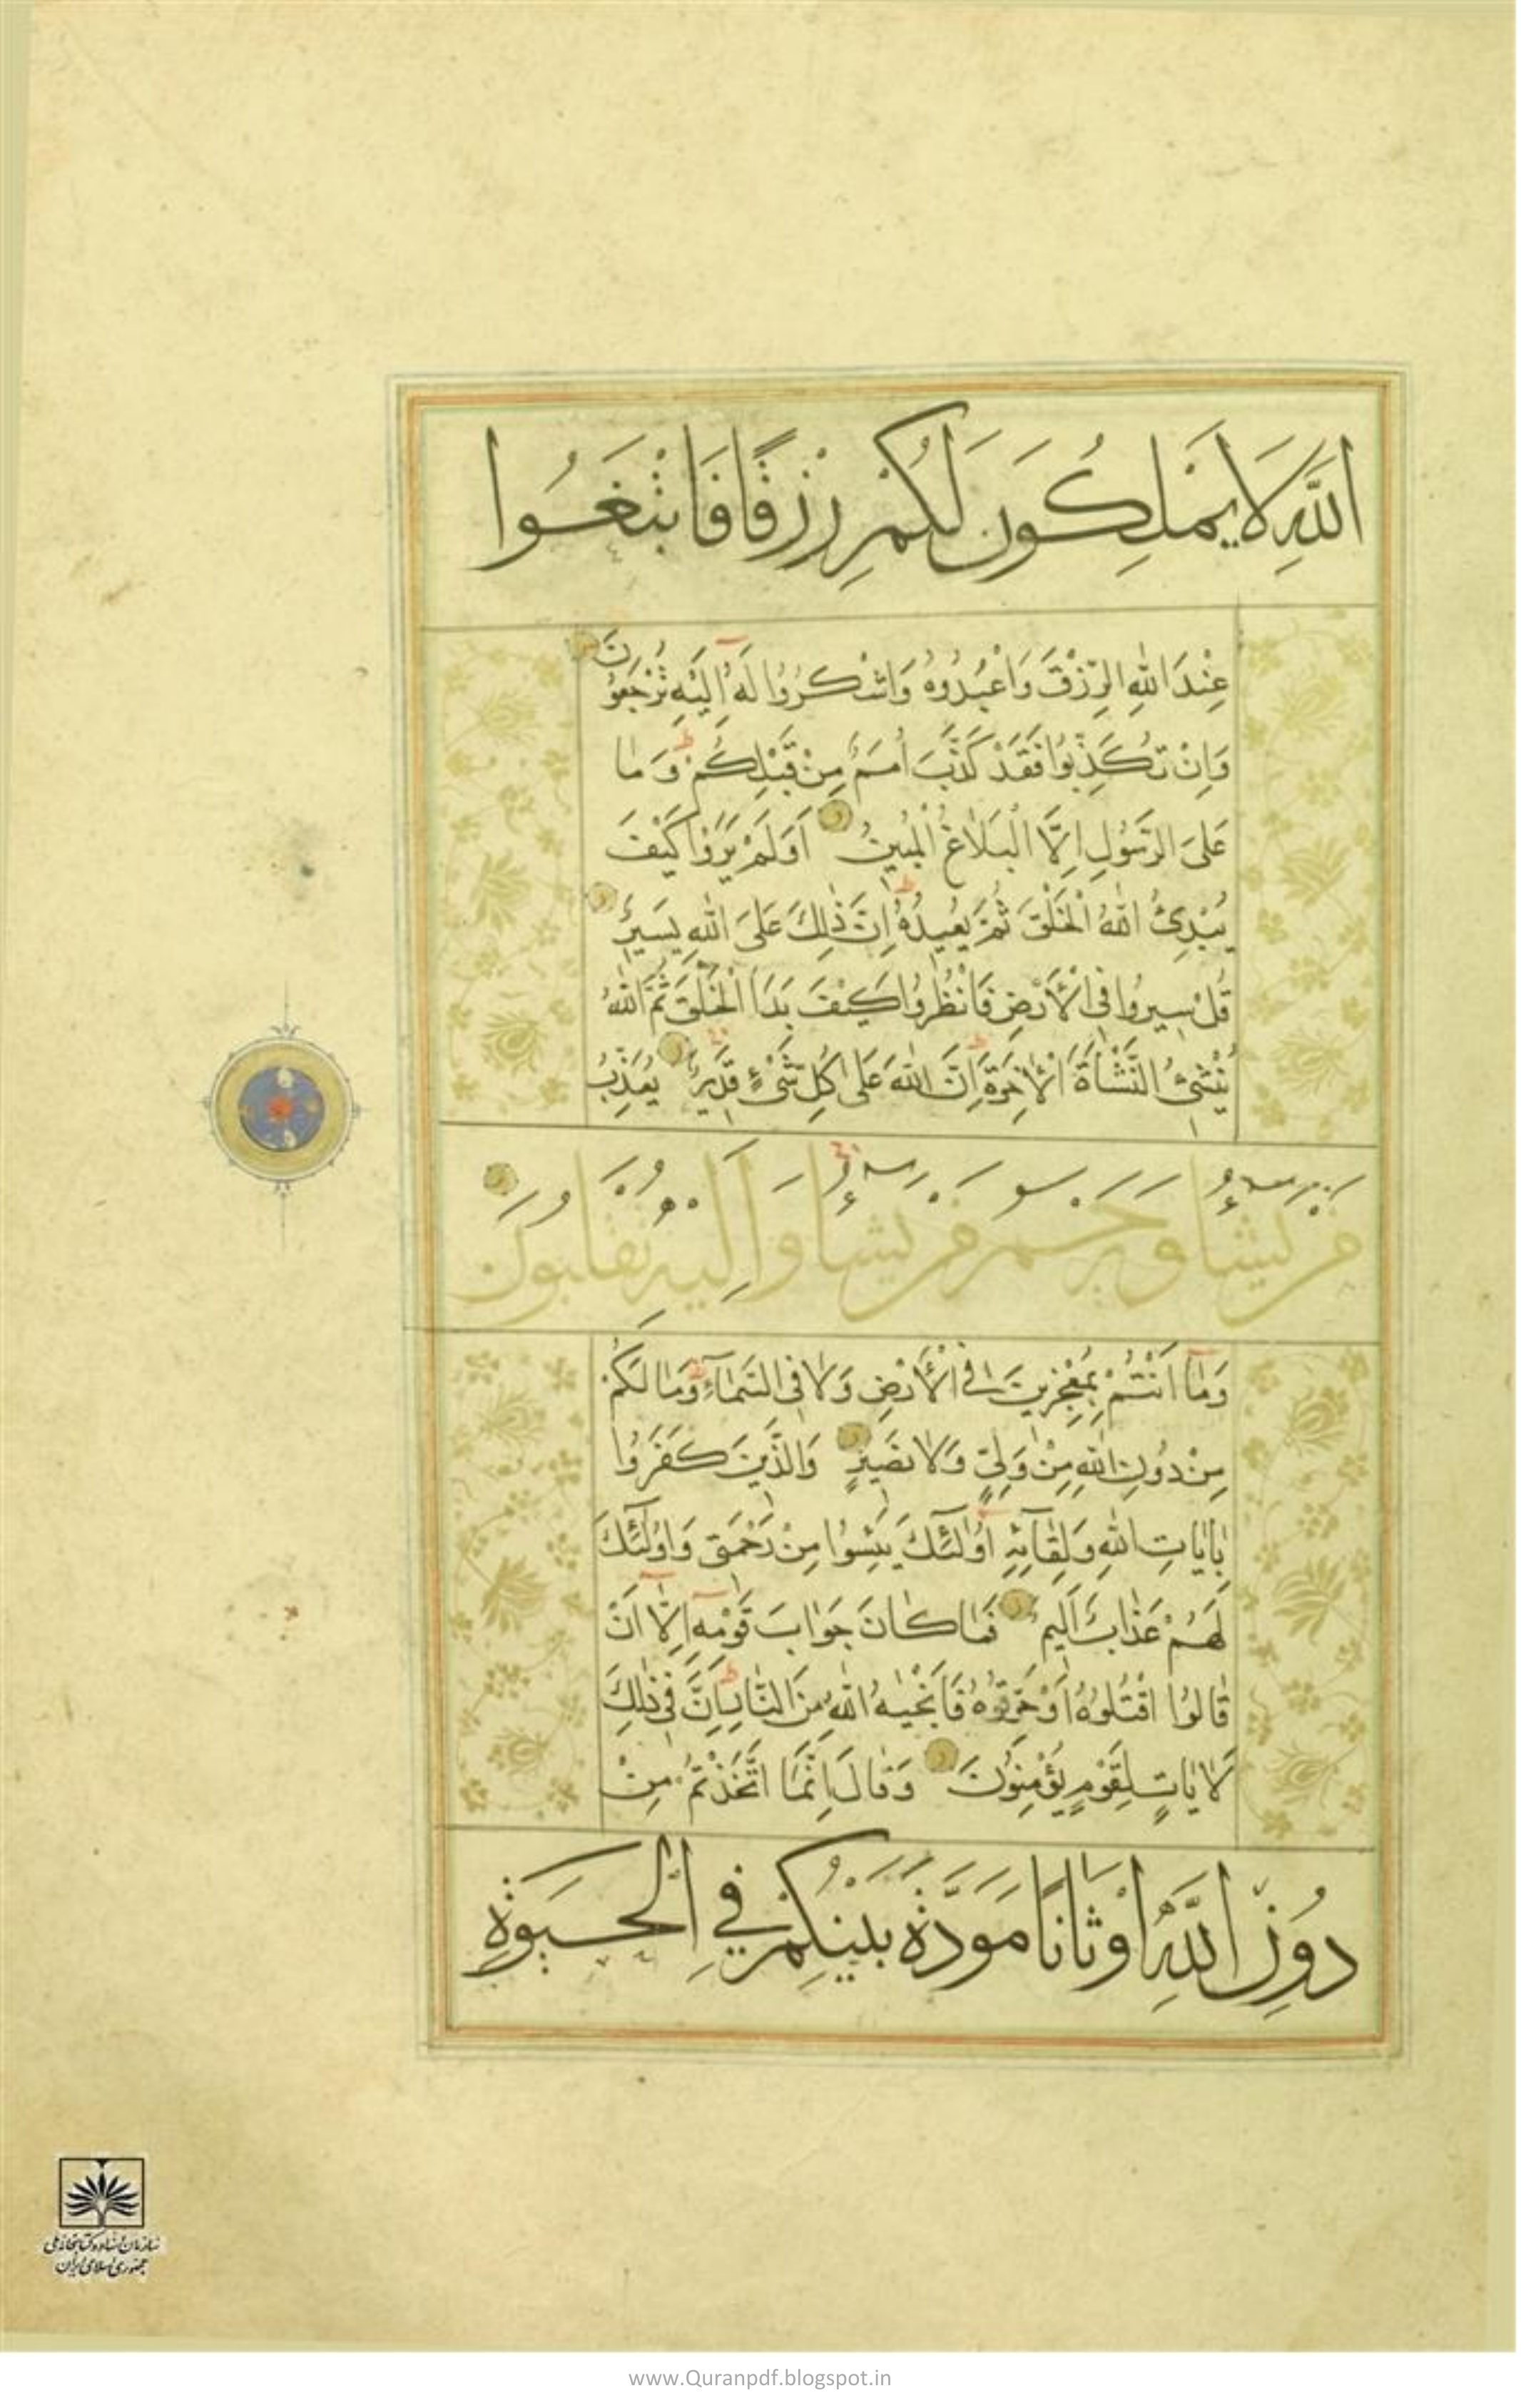 اللَّهِ لَا يَمْلِكُونَ لَكُمْ رِزْقًا فَابْتَغُوا
عِنْدَ اللّٰهِ الرِّزْقَ وَاعْبُدُوهُ وَاشْكُرُوا لَهُ اِلَيْهِ تُرْجَعُونَ
وَاِنْ تُكَذِّبُوا فَقَدْ كَذَّبَ اُمَمٌ مِنْ قَبْلِكُمْ ط وَمَا
عَلَى الرَّسُولِ اِلَّا الْبَلَاغُ الْمُبِينُ اَوَلَمْ يَرَوْا كَيْفَ
يُبْدِئُ اللّٰهُ الْخَلْقَ ثُمَّ يُعِيدُهُ ط اِنَّ ذٰلِكَ عَلَى اللّٰهِ يَسِيرٌ
قُلْ سِيرُوا فِي الْاَرْضِ فَانْظُرُوا كَيْفَ بَدَاَ الْخَلْقَ ثُمَّ اللّٰهُ
يُنْشِئُ النَّشْاَةَ الْاٰخِرَةَ ط اِنَّ اللّٰهَ عَلٰى كُلِّ شَيْءٍ قَدِيرٌ يُعَذِّبُ
مَنْ يَشَاءُ وَيَرْحَمُ مَنْ يَشَاءُ وَاِلَيْهِ تُقْلَبُونَ
وَمَا اَنْتُمْ بِمُعْجِزِينَ فِي الْاَرْضِ وَلَا فِي السَّمَاءِ ط وَمَا لَكُمْ
مِنْ دُونِ اللّٰهِ مِنْ وَلِيٍّ وَلَا نَصِيرٍ وَالَّذِينَ كَفَرُوا
بِاٰيَاتِ اللّٰهِ وَلِقَائِهِ اُولٰئِكَ يَئِسُوا مِنْ رَحْمَتِي وَاُولٰئِكَ
لَهُمْ عَذَابٌ اَلِيمٌ فَمَا كَانَ جَوَابَ قَوْمِهِ اِلَّا اَنْ
قَالُوا اقْتُلُوهُ اَوْ حَرِّقُوهُ فَاَنْجٰيهُ اللّٰهُ مِنَ النَّارِ ط اِنَّ فِي ذٰلِكَ
لَاٰيَاتٍ لِقَوْمٍ يُؤْمِنُونَ وَقَالَ اِنَّمَا اتَّخَذْتُمْ مِنْ
دُونِ اللَّهِ اَوْثَانًا مَوَدَّةَ بَيْنِكُمْ فِي الْحَيٰوةِ
سازمان اسناد و کتابخانه ملی
جمهوری اسلامی ایران
www.Quranpdf.blogspot.in